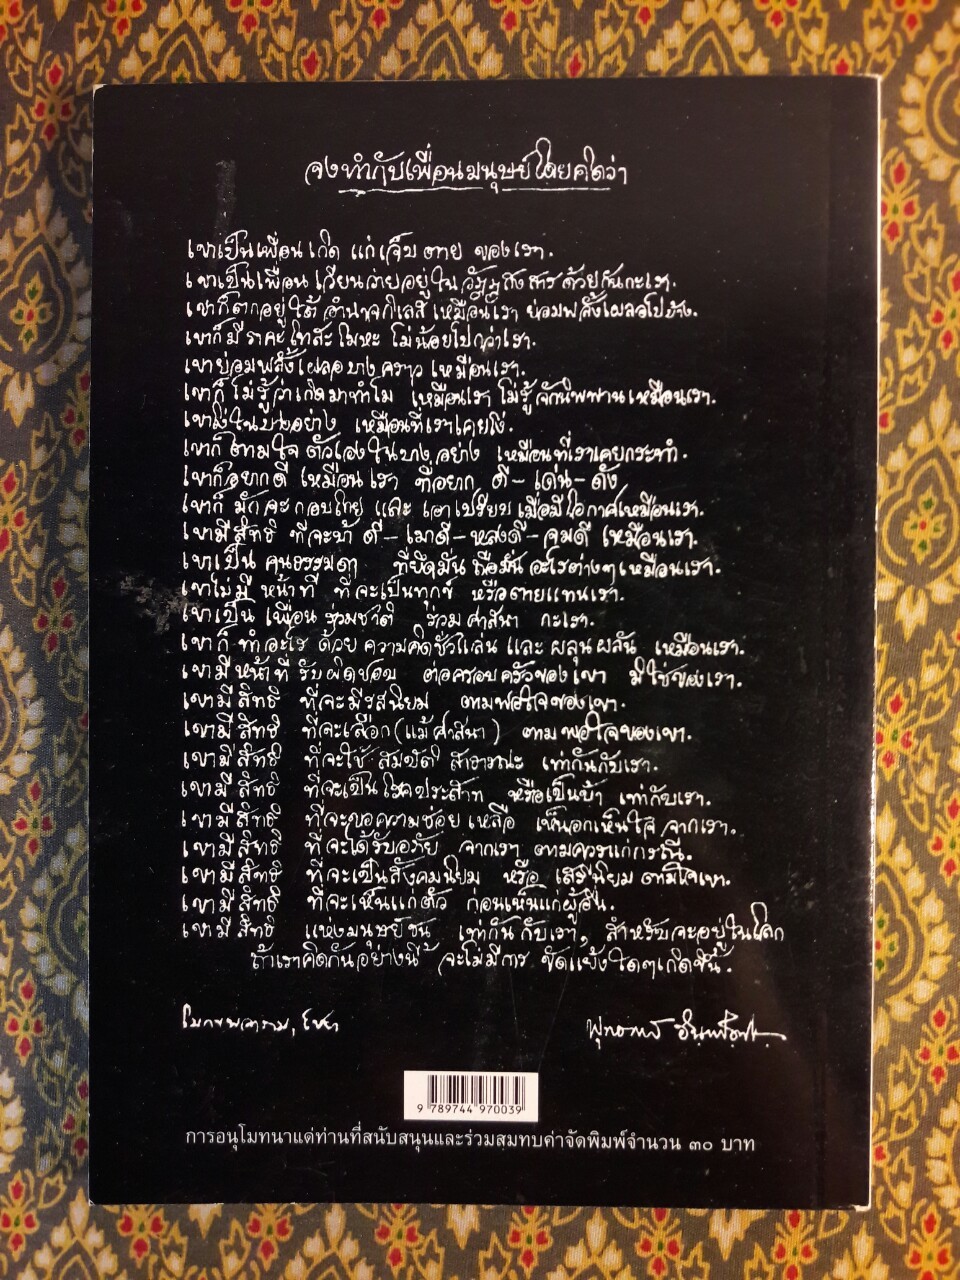 จงทำกับเพื่อนมนุษย์โดยคิดว่า
เขาเป็นเพื่อน เกิด แก่ เจ็บ ตาย ของเรา.
เขาเป็นเพื่อน เวียนว่ายอยู่ใน วัฏฏสงสาร ด้วยกันกะเรา.
เขาก็ตกอยู่ใต้ อำนาจกิเลส เหมือนเรา ย่อมพลั้งเผลอไปบ้าง.
เขาก็มี ราคะ โทสะ โมหะ ไม่น้อยไปกว่าเรา.
เขาย่อมพลั้งเผลอบางคราว เหมือนเรา.
เขาก็ ไม่รู้ว่าเกิดมาทำไม เหมือนเรา ไม่รู้จักนิพพานเหมือนเรา.
เขาโง่ในบางอย่าง เหมือนที่เราเคยโง่.
เขาก็ ตามใจ ตัวเองในบางอย่าง เหมือนที่เราเคยกระทำ.
เขาก็อยากดี เหมือนเรา ที่อยาก ดี - เด่น - ดัง
เขาก็ มักจะ กอบโกย และ เอาเปรียบ เมื่อมีโอกาสเหมือนเรา.
เขามีสิทธิ ที่จะบ้า ดี - เมาดี - หลงดี - จมดี เหมือนเรา.
เขาเป็น คนธรรมดา ที่ยึดมั่น ถือมั่น อะไรต่างๆเหมือนเรา.
เขาไม่มี หน้าที่ ที่จะเป็นทุกข์ หรือตายแทนเรา.
เขาเป็น เพื่อน ร่วมชาติ ร่วมศาสนา กะเรา.
เขาก็ ทำอะไร ด้วย ความคิดชั่วแล่น และ ผลุนผลัน เหมือนเรา.
เขามี หน้าที่ รับผิดชอบ ต่อครอบครัวของเขา มิใช่ของเรา.
เขามี สิทธิ ที่จะมีรสนิยม ตามพอใจของเขา.
เขามี สิทธิ ที่จะเลือก (แม้ศาสนา) ตามพอใจของเขา.
เขามี สิทธิ ที่จะใช้ สมบัติ สาธารณะ เท่ากันกับเรา.
เขามี สิทธิ ที่จะเป็นโรคประสาท หรือเป็นบ้า เท่ากับเรา.
เขามี สิทธิ ที่จะขอความช่วย เหลือ เห็นอกเห็นใจ จากเรา.
เขามี สิทธิ ที่จะได้รับอภัย จากเรา ตามควรแก่กรณี.
เขามี สิทธิ ที่จะเป็นสังคมนิยม หรือ เสรีนิยม ตามใจเขา.
เขามี สิทธิ ที่จะเห็นแก่ตัว ก่อนเห็นแก่ผู้อื่น.
เขามี สิทธิ แห่งมนุษย์ชน เท่ากันกับเรา, สำหรับจะอยู่ในโลก
ถ้าเราคิดกันอย่างนี้ จะไม่มีการ ขัดแย้งใดๆเกิดขึ้น.
โมกขพลาราม, ไชยา
พุทธทาส อินทปัญโญ
9 789744 970039
การอนุโมทนาแด่ท่านที่สนับสนุนและร่วมสมทบค่าจัดพิมพ์จำนวน ๓๐ บาท